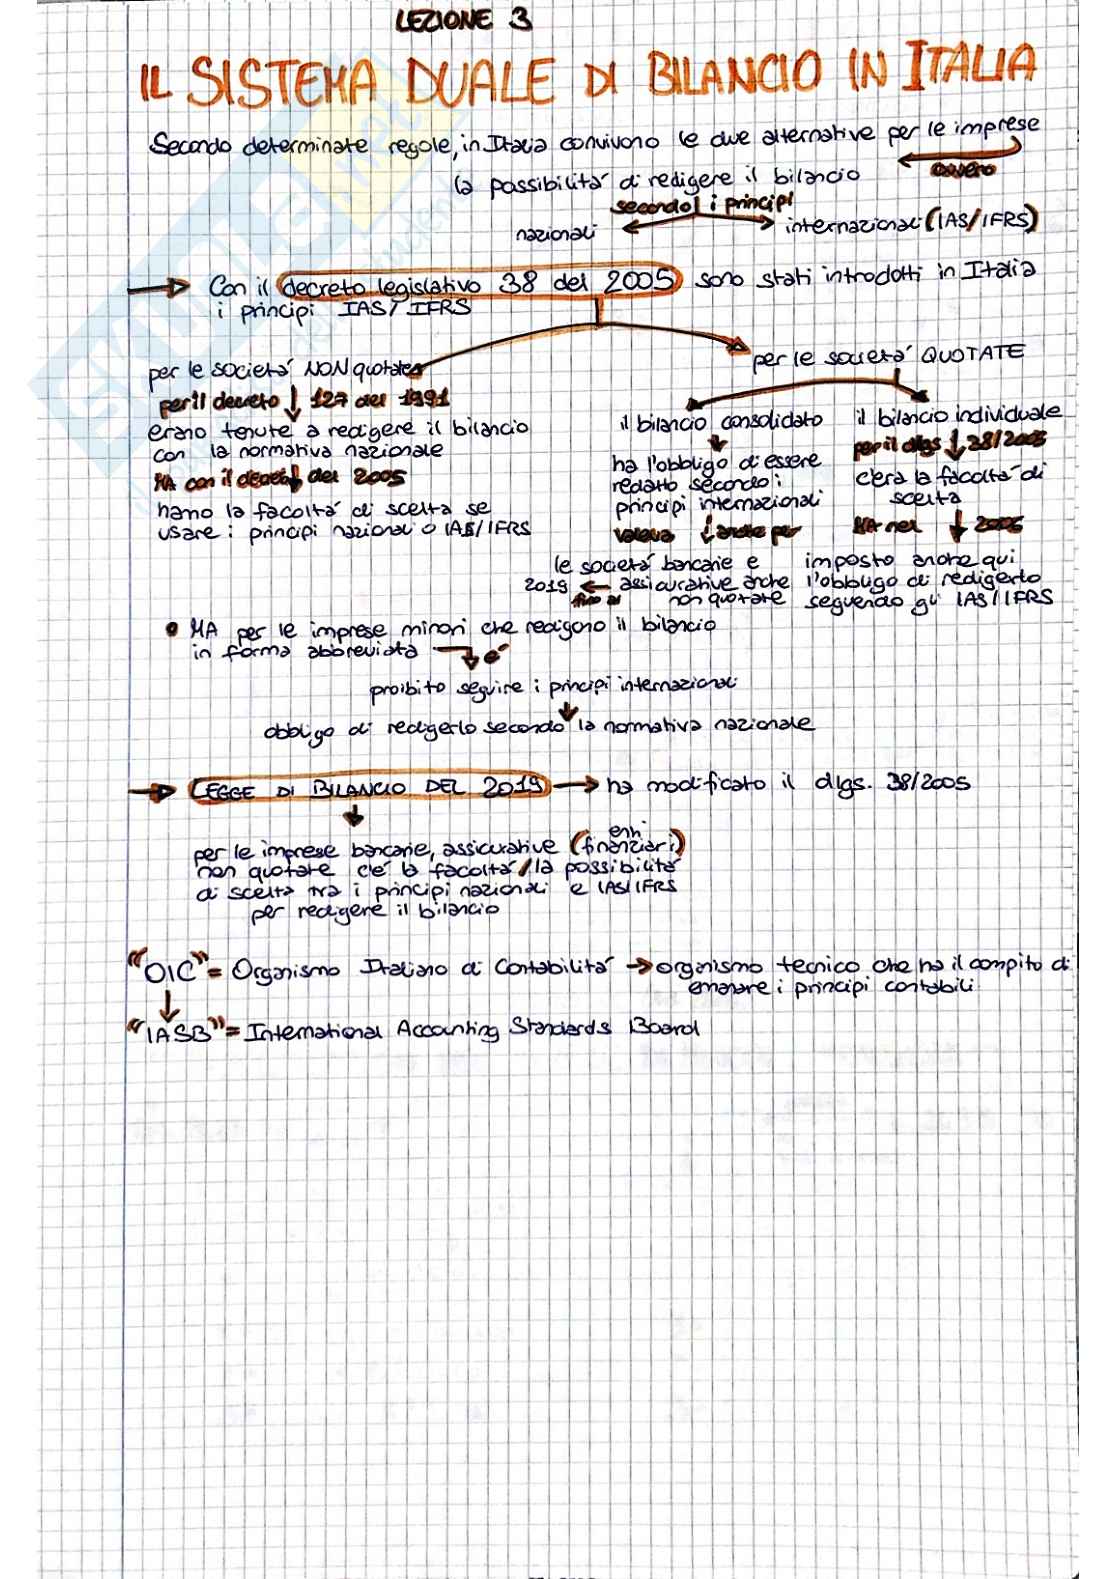 LEZIONE 3
IL SISTEMA DUALE DI BILANCIO IN ITALIA
Secondo determinate regole, in Italia convivono le due alternative per le imprese
ovvero
la possibilità di redigere il bilancio
secondo i principi
nazionali
internazionali (IAS/IFRS)
Con il decreto legislativo 38 del 2005 sono stati introdotti in Italia
i principi IAS/IFRS
per le società NON quotate
per il decreto 127 del 1991
erano tenute a redigere il bilancio
con la normativa nazionale
MA con il decreto del 2005
hanno la facoltà di scelta se
usare i principi nazionali o IAS/IFRS
per le società QUOTATE
il bilancio consolidato
ha l'obbligo di essere
redatto secondo i
principi internazionali
valeva anche per
le società bancarie e
assicurative anche
non quotate
fino al
2019
il bilancio individuale
per il dlgs 38/2005
c'era la facoltà di
scelta
MA nel 2006
imposto anche qui
l'obbligo di redigerlo
seguendo gli IAS/IFRS
MA per le imprese minori che redigono il bilancio
in forma abbreviata è
proibito seguire i principi internazionali
obbligo di redigerlo secondo la normativa nazionale
LEGGE DI BILANCIO DEL 2019 ha modificato il dlgs. 38/2005
per le imprese bancarie, assicurative (enti finanziari)
non quotate c'è la facoltà/la possibilità
di scelta tra i principi nazionali e IAS/IFRS
per redigere il bilancio
"OIC" = Organismo Italiano di Contabilità organismo tecnico che ha il compito di
emanare i principi contabili
"IASB" = International Accounting Standards Board